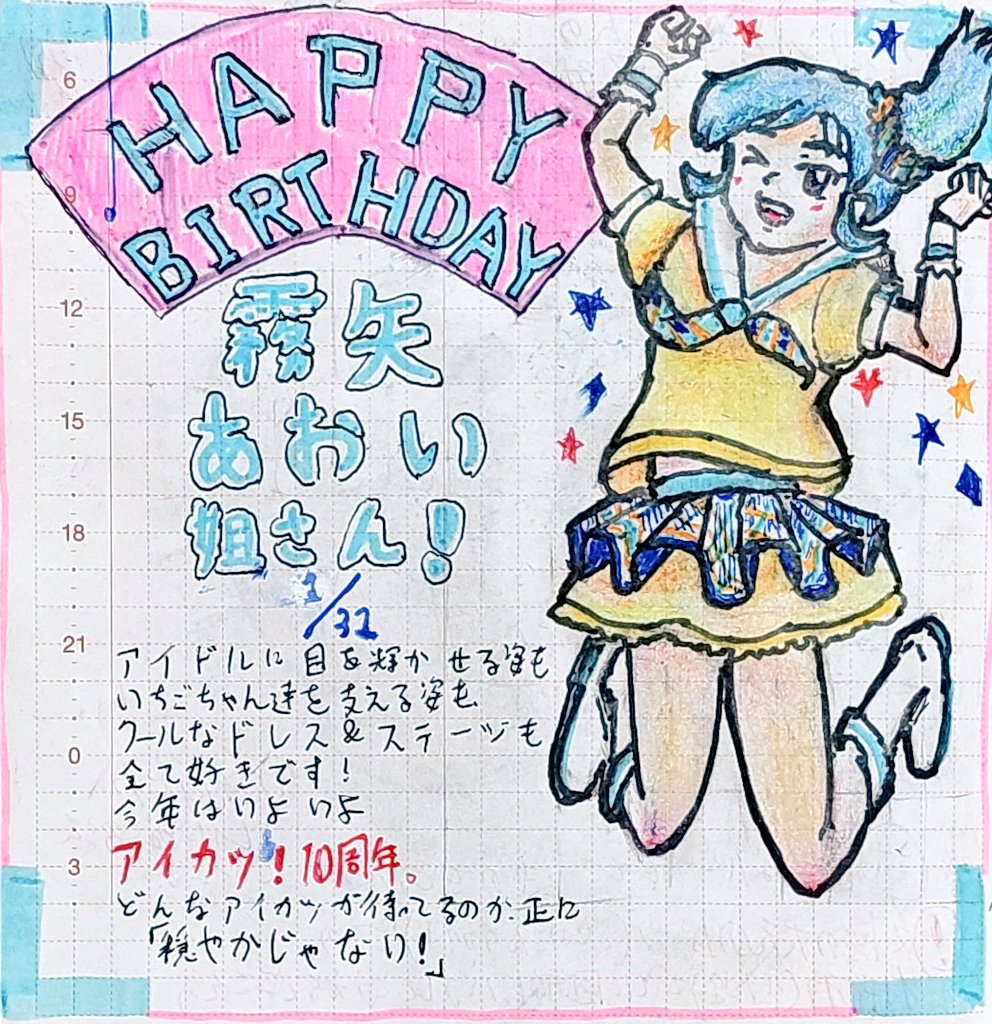 HAPPY
BIRTHDAY
霧矢
あおい
姐さん!
1/32
アイドルに目を輝かせる姿も
いちごちゃん達を支える姿も
クールなドレス&ステージも
全て好きです!
今年はいよいよ
アイカツ!10周年。
どんなアイカツが待ってるのか、正に
「穏やかじゃない!」
6
9
12
15
18
21
0
3